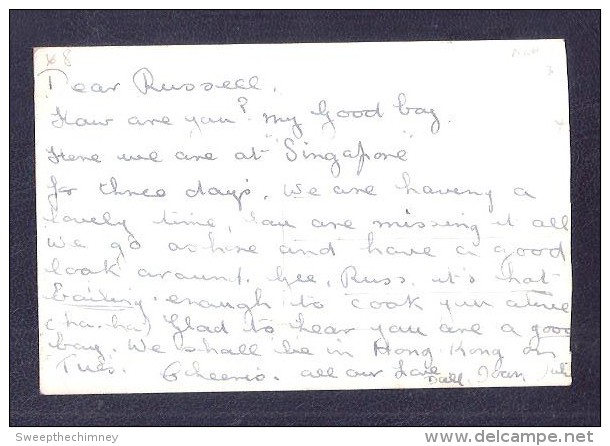 x8
Dear Russell,
How are you? my good boy.
Here we are at "Singapore"
for three days. We are having a
lovely time, you are missing it all
We go ashore and have a good
look around. Gee, Russ, it's hot
Boiling. enough to cook you alive
(ha. ha.) Glad to hear you are a good
boy. We shall be in Hong Kong on
Tues. Cheerio. all our love
Joan,
Sweepthechimney
www.delcampe.net